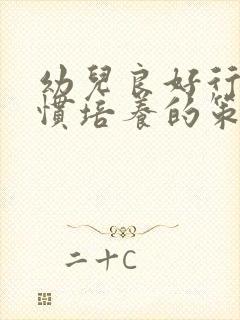 幼兒良好行
慣培養的策
二十C